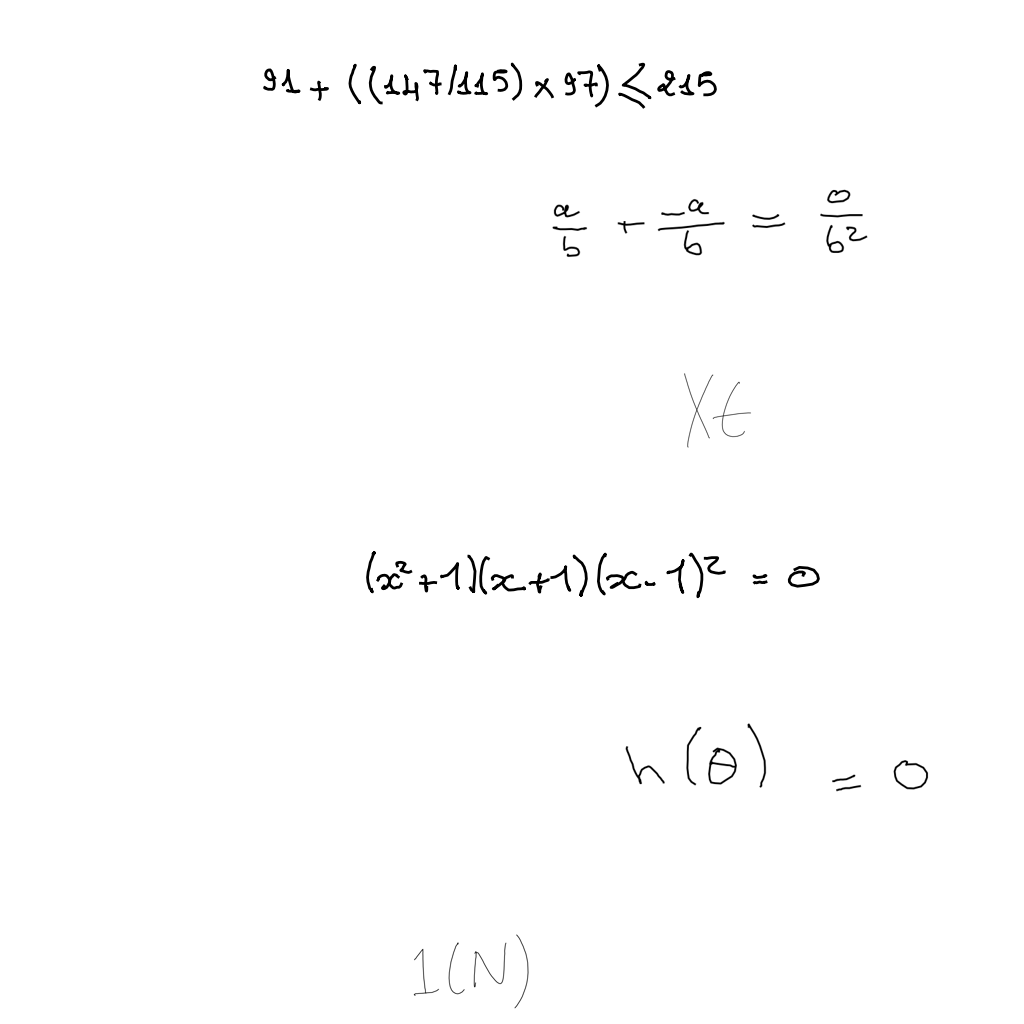 91 + ((147/115) × 97) ≤ 215
\frac{a}{b} + \frac{-a}{b} = \frac{0}{b^2}
X t
(x^2 + 1)(x + 1)(x - 1)^2 = 0
h(θ) = 0
1(N)